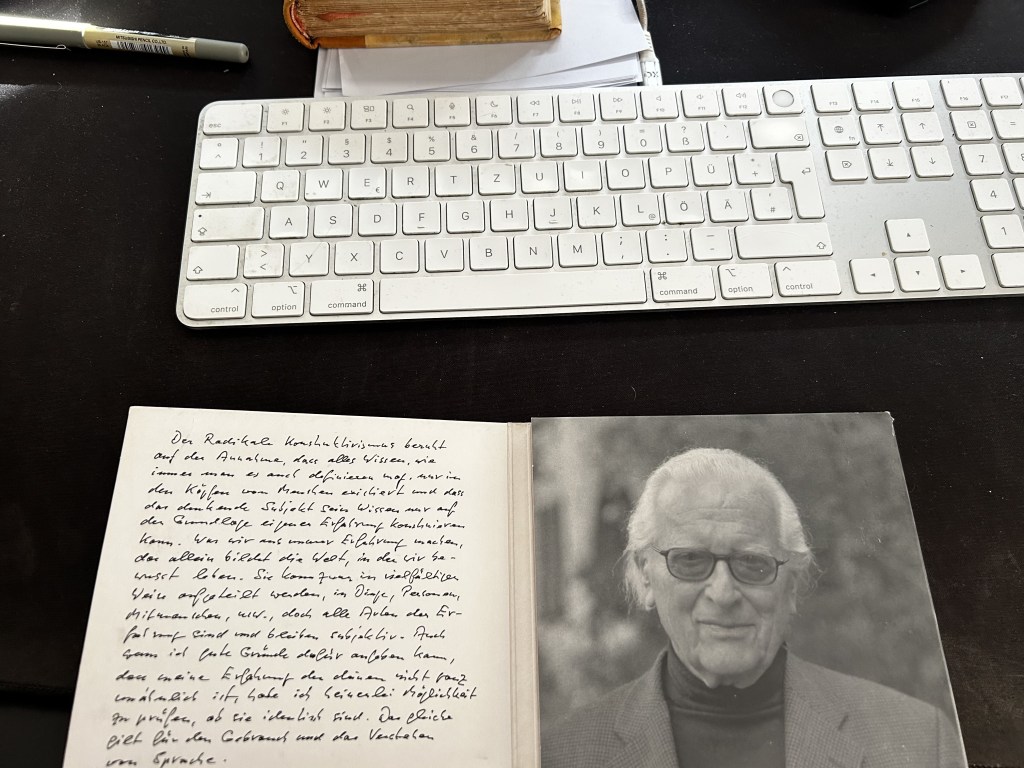 MITSUBISHI PENCIL CO.,LTD.
esc F1 F2 F3 F4 F5 F6 F7 F8 F9 F10 F11 F12 F13 F14 F15 F16 F17
° ^ ! 1 " 2 § 3 $ 4 % 5 & 6 / 7 ( 8 ) 9 = 0 ? ß ` ´ fn =
Q W E € R T Z U I O P Ü * + 7 8
A S D F G H J K L @ Ö Ä ' # 4
> < Y X C V B N M ; , : . _ - 1
control option command command option control
Der Radikale Konstruktivismus beruht
auf der Annahme, dass alles Wissen, wie
immer man es auch definieren mag, nur in
den Köpfen von Menschen existiert und dass
das denkende Subjekt sein Wissen nur auf
der Grundlage eigener Erfahrung konstruieren
kann. Was wir aus unserer Erfahrung machen,
das allein bildet die Welt, in der wir be-
wusst leben. Sie kann zwar in vielfältigen
Weise aufgeteilt werden, in Dinge, Personen,
Mitmenschen, usw., doch alle Arten der Er-
fahrung sind und bleiben subjektiv. Auch
wenn ich gute Gründe dafür angeben kann,
dass meine Erfahrung der deinen nicht ganz
unähnlich ist, habe ich keinerlei Möglichkeit
zu prüfen, ob sie identisch sind. Das gleiche
gilt für den Gebrauch und das Verstehen
von Sprache.